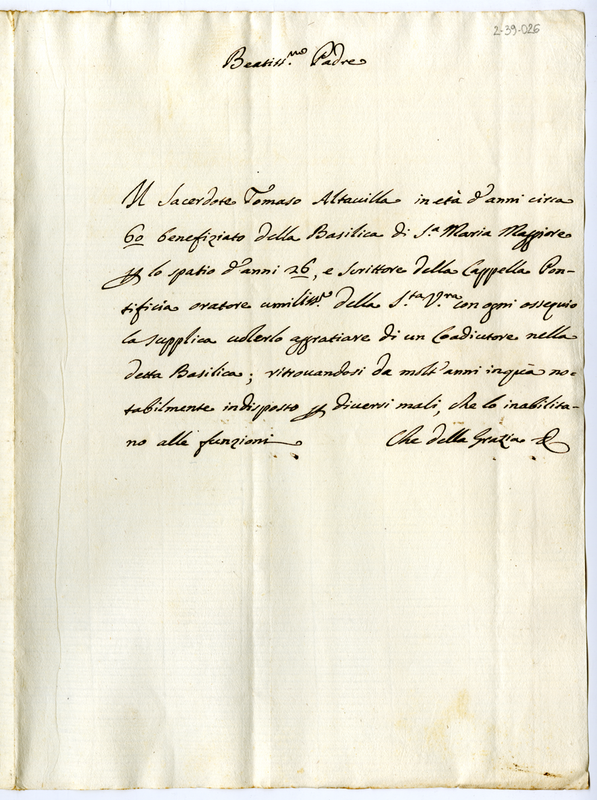 2-39-026
Beatiss.mo Padre
Il Sacerdote Tomaso Altavilla in età d'anni circa
60 benefiziato della Basilica di S.a Maria Maggiore
p lo spatio d'anni 26, e Scrittore della Cappella Pon-
tificia oratore umiliss.o della S.ta V.ra con ogni ossequio
la supplica volerlo aggratiare di un Coadiutore nella
detta Basilica; ritrovandosi da molt'anni inquà no-
tabilmente indisposto p diversi mali, che lo inabilita-
no alle funzioni Che della Grazia &